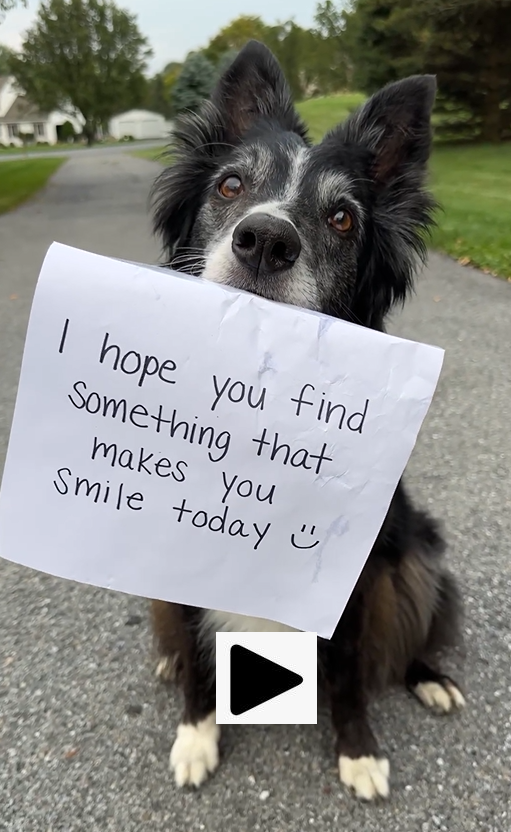 I hope you find
Something that
makes you
Smile today :)